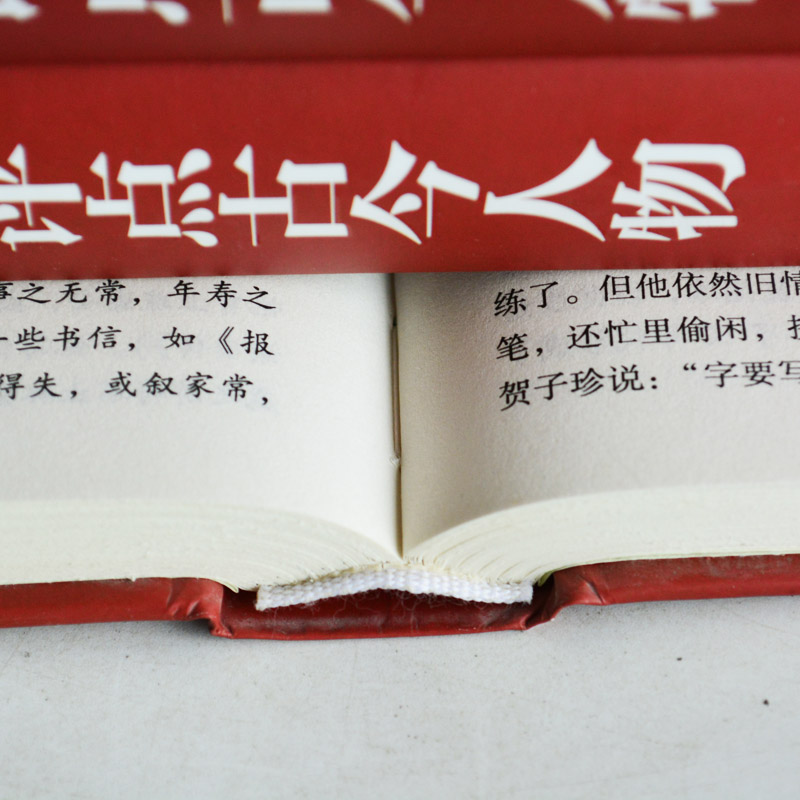 评点古今人物
事之无常，年寿之
一些书信，如《报
得失，或叙家常，
练了。但他依然旧情
笔，还忙里偷闲，
贺子珍说：“字要写